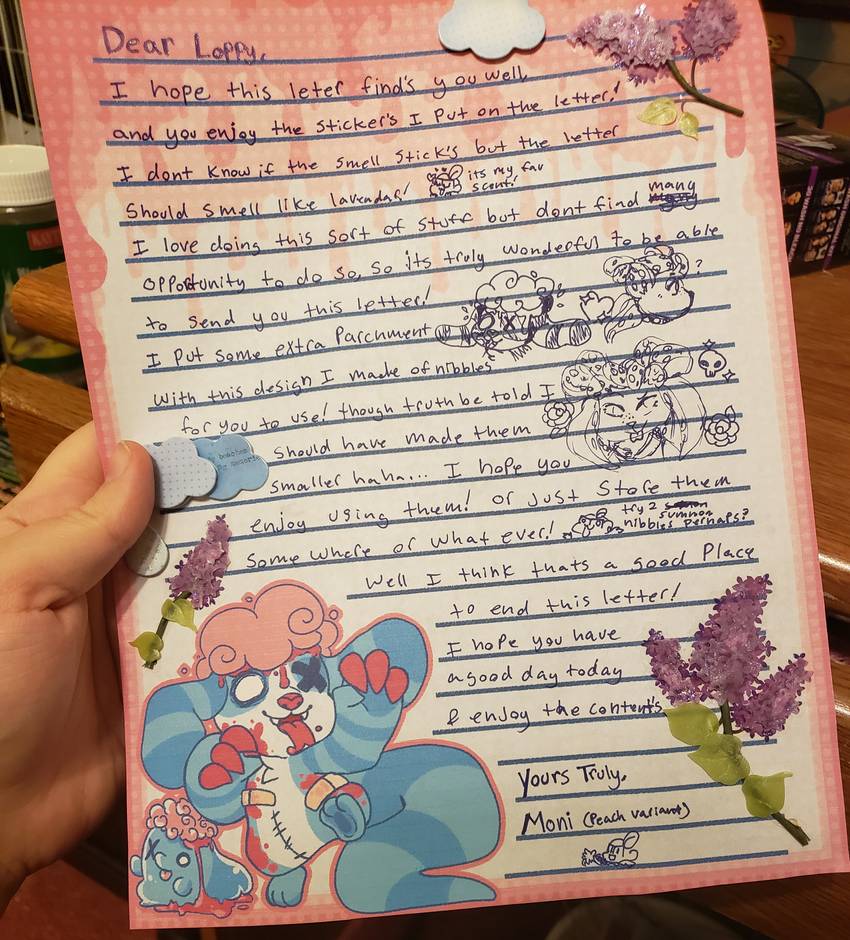 Dear Loppy,
I hope this leter find's you well
and you enjoy the sticker's I Put on the letter!
I dont know if the smell stick's but the letter
Should smell like lavendar! its my fav
scent!
I love doing this sort of stuff but dont find many
opportunity to do so, so its truly wonderful to be able
to send you this letter! ?
I Put some extra Parchment
with this design I made of nibbles
for you to use! though truth be told I
Should have made them
smaller haha... I hope you
enjoy using them! or just store them
some where or what ever! try 2 summon
nibbles perhaps?
Well I think thats a good Place
to end this letter!
I hope you have
a good day today
& enjoy the content's
Yours Truly,
Moni (Peach variant)